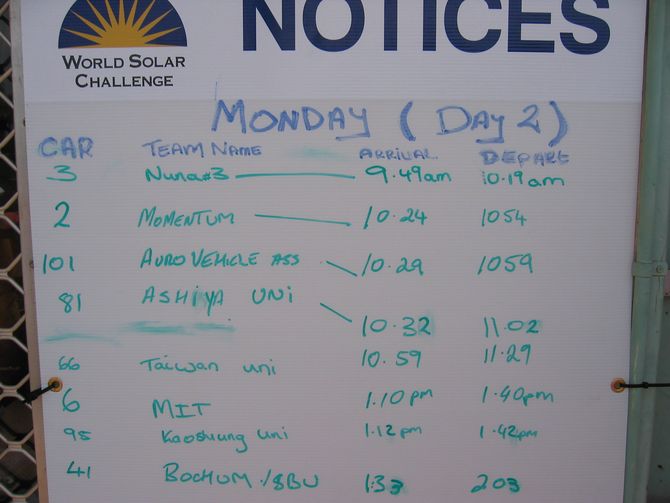 NOTICES
WORLD SOLAR
CHALLENGE
MONDAY (DAY 2)
CAR TEAM NAME ARRIVAL DEPART
3 Nuna#3 9.49am 10.19am
2 MOMENTUM 10.24 1054
101 AURO VEHICLE ASS 10.29 1059
81 ASHIYA UNI 10.32 11.02
66 Taiwan uni 10.59 11.29
6 MIT 1.10pm 1.40pm
95 Kaoshiung Uni 1.12pm 1.42pm
41 BOCHUM /SBU 1.33 2.03